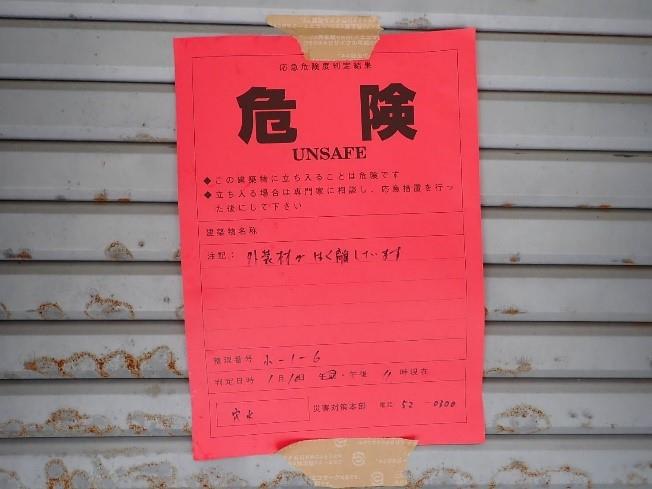 応急危険度判定結果
危険
UNSAFE
◆この建築物に立ち入ることは危険です
◆立ち入る場合は専門家に相談し、応急措置を行っ
た後にして下さい
建築物名称
注記：外装材がはく離しています
整理番号 ホ-1-6
判定日時 1月 日 午前・午後 11時現在
穴水 災害対策本部 電話 52-0300